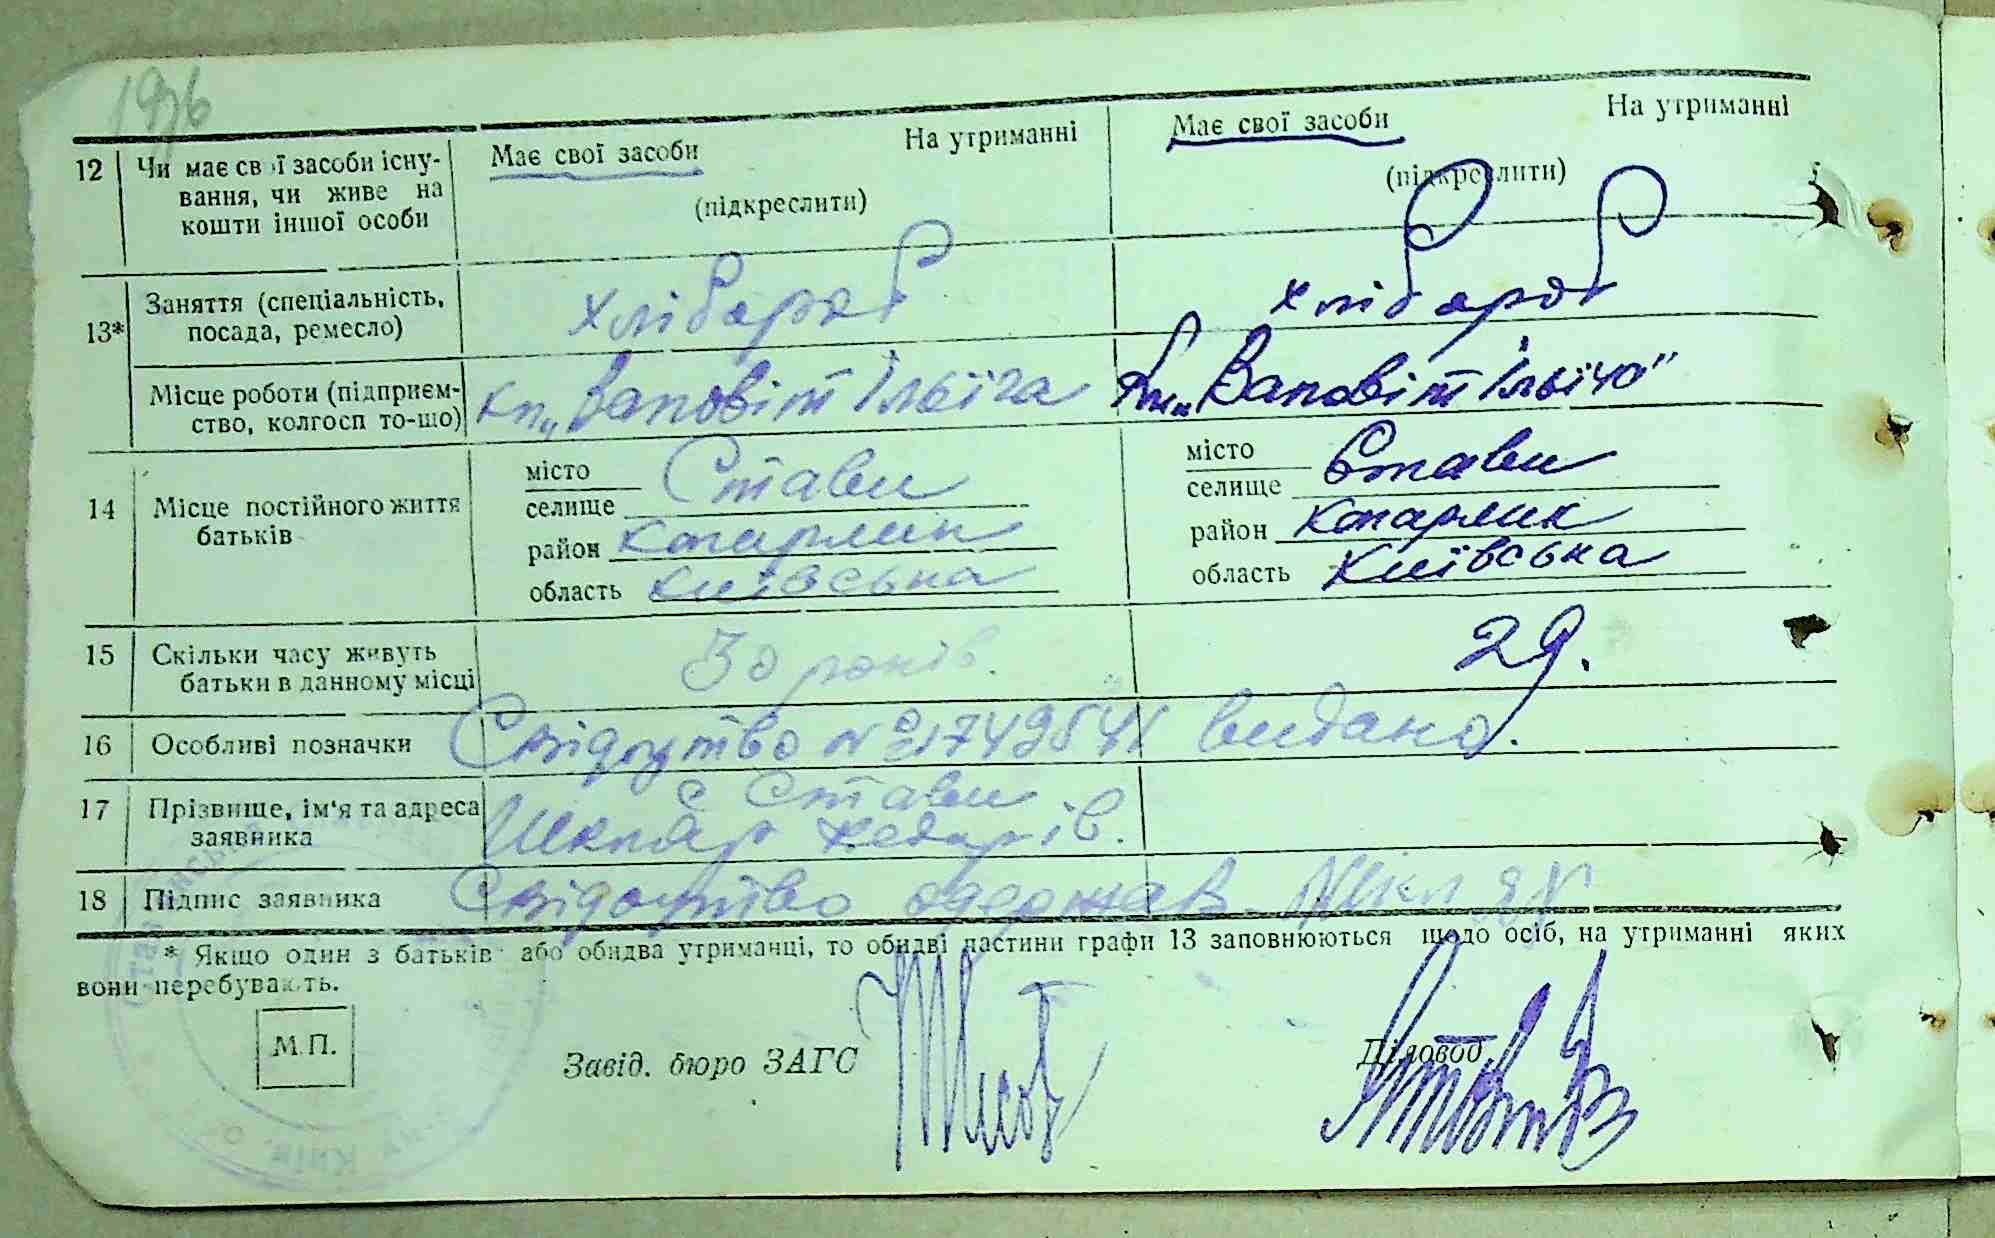 1936
12 Чи має свої засоби існу-
вання, чи живе на
кошти іншої особи
Має свої засоби На утриманні
(підкреслити)
Має свої засоби На утриманні
(підкреслити)
13* Заняття (спеціальність,
посада, ремесло)
хлібароб
хлібароб
Місце роботи (підприєм-
ство, колгосп то-що)
кп „Заповіт Ілліча
„Заповіт Ілліча"
14 Місце постійного життя
батьків
місто
селище Стави
район Кагарлик
область Київська
місто
селище Стави
район Кагарлик
область Київська
15 Скільки часу живуть
батьки в данному місці
30 років.
29.
16 Особливі позначки
Свідоцтво № видано.
17 Прізвище, ім'я та адреса
заявника
с Стави
Шкляр
18 Підпис заявника
Свідоцтво одержав Шкляр
* Якщо один з батьків або обидва утриманці, то обидві частини графи 13 заповнюються щодо осіб, на утриманні яких
вони перебувають.
М.П.
Завід. бюро ЗАГС
Діловод